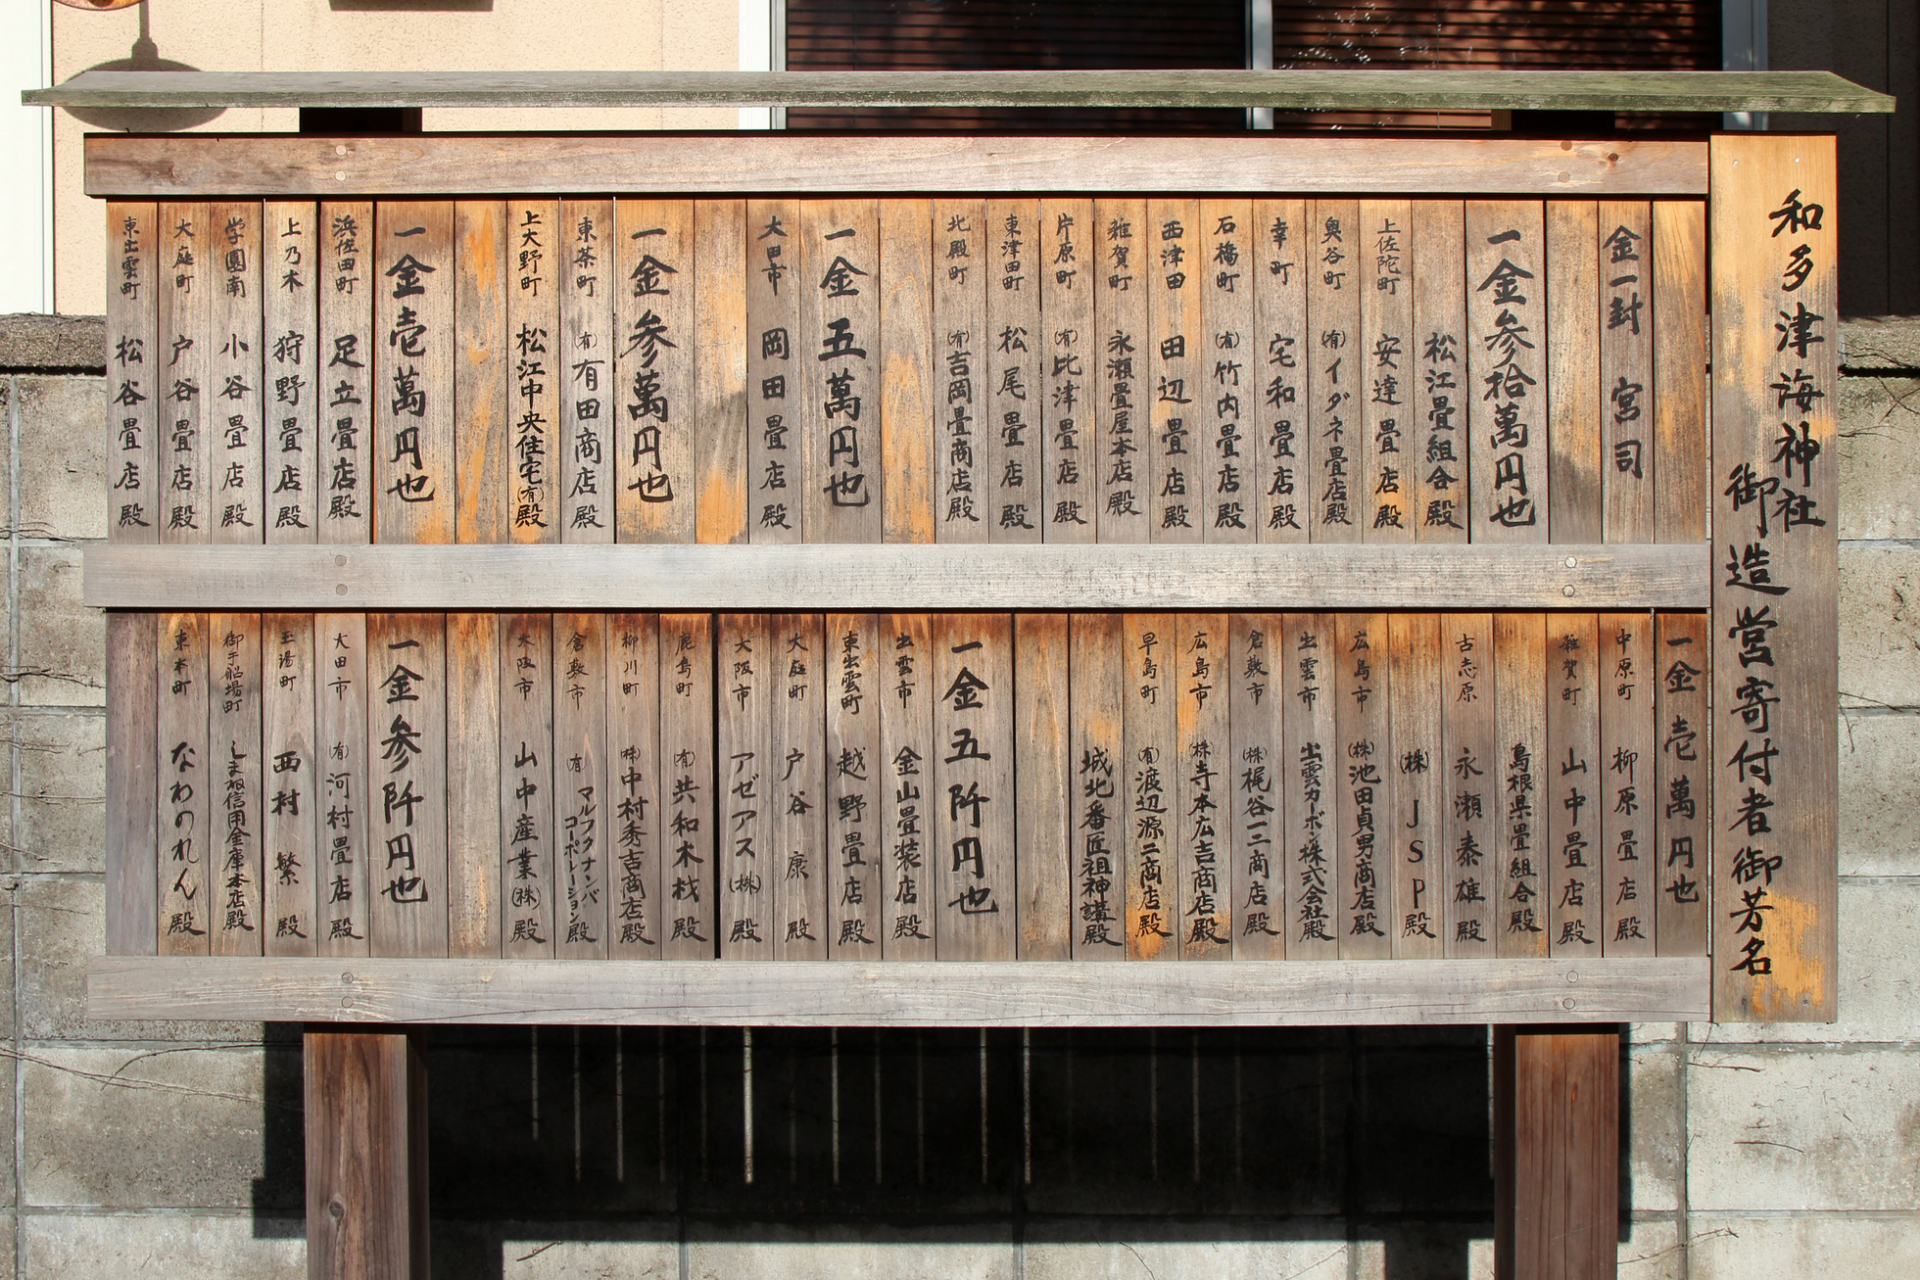 和多津海神社
御造営寄付者御芳名
金一封 宮司
一金参拾萬円也
松江畳組合殿
上佐陀町 安達畳店殿
奥谷町 (有)イダネ畳店殿
幸町 宅和畳店殿
石橋町 (有)竹内畳店殿
西津田 田辺畳店殿
雑賀町 永瀬畳屋本店殿
片原町 (有)比津畳店殿
東津田町 松尾畳店殿
北殿町 (有)吉岡畳商店殿
一金五萬円也
大田市 岡田畳店殿
一金参萬円也
東茶町 (有)有田商店殿
上大野町 松江中央住宅(有)殿
一金壱萬円也
浜佐田町 足立畳店殿
上乃木 狩野畳店殿
学園南 小谷畳店殿
大庭町 戸谷畳店殿
東出雲町 松谷畳店殿
一金壱萬円也
中原町 柳原畳店殿
雑賀町 山中畳店殿
島根県畳組合殿
古志原 永瀬泰雄殿
(株)JSP殿
広島市 (株)池田貞男商店殿
出雲市 出雲カーボ株式会社殿
倉敷市 (株)梶谷一二商店殿
広島市 (株)寺本広吉商店殿
早島町 (有)渡辺源二商店殿
城北番匠祖神講殿
一金五阡円也
出雲市 金山畳装店殿
東出雲町 越野畳店殿
大庭町 戸谷康殿
大阪市 アゼアス(株)殿
鹿島町 (有)共和木材殿
柳川町 (株)中村秀吉商店殿
倉敷市 (有)マルフクナンバコーポレーション殿
大阪市 山中産業(株)殿
一金参阡円也
大田市 (有)河村畳店殿
玉湯町 西村繁殿
御手船場町 しまね信用金庫本店殿
東本町 なわのれん殿